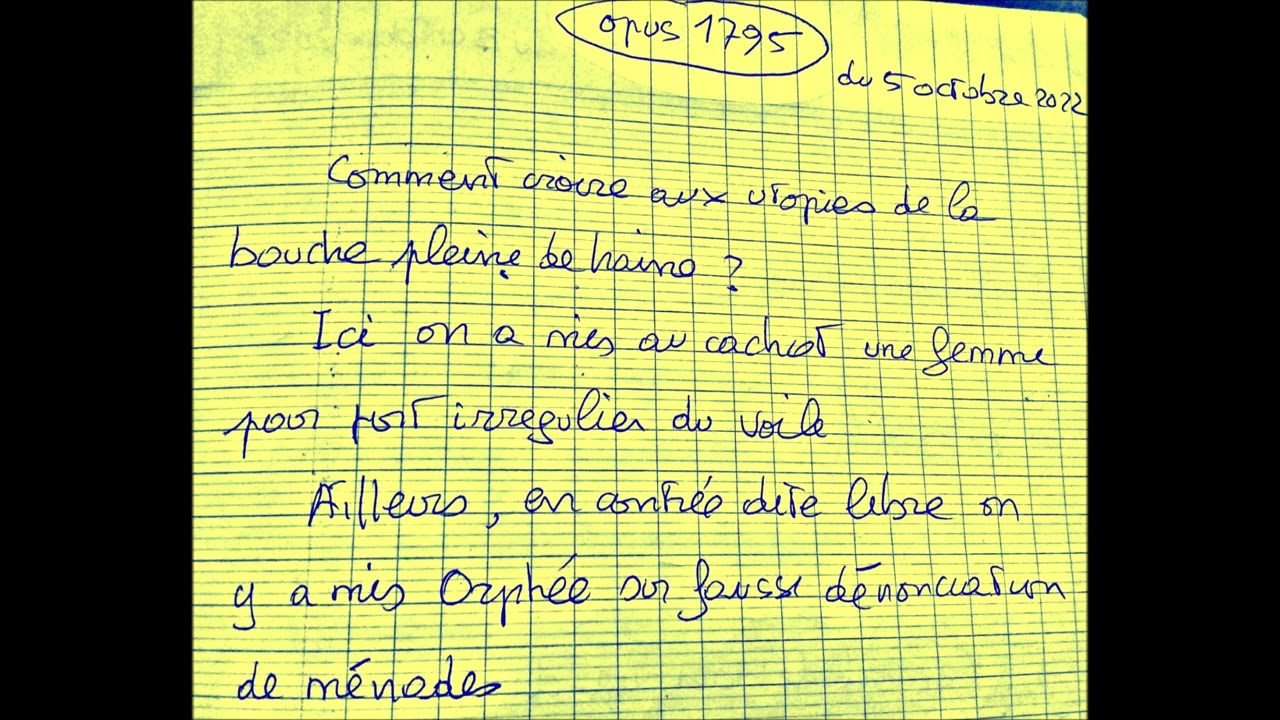 opus 1795
du 5 octobre 2022
Comment croire aux utopies de la
bouche pleine de haine ?
Ici on a mis au cachot une femme
pour port irregulier du voile
Ailleurs, en contrée dite libre on
y a mis Orphée sur fausse dénonciation
de ménades